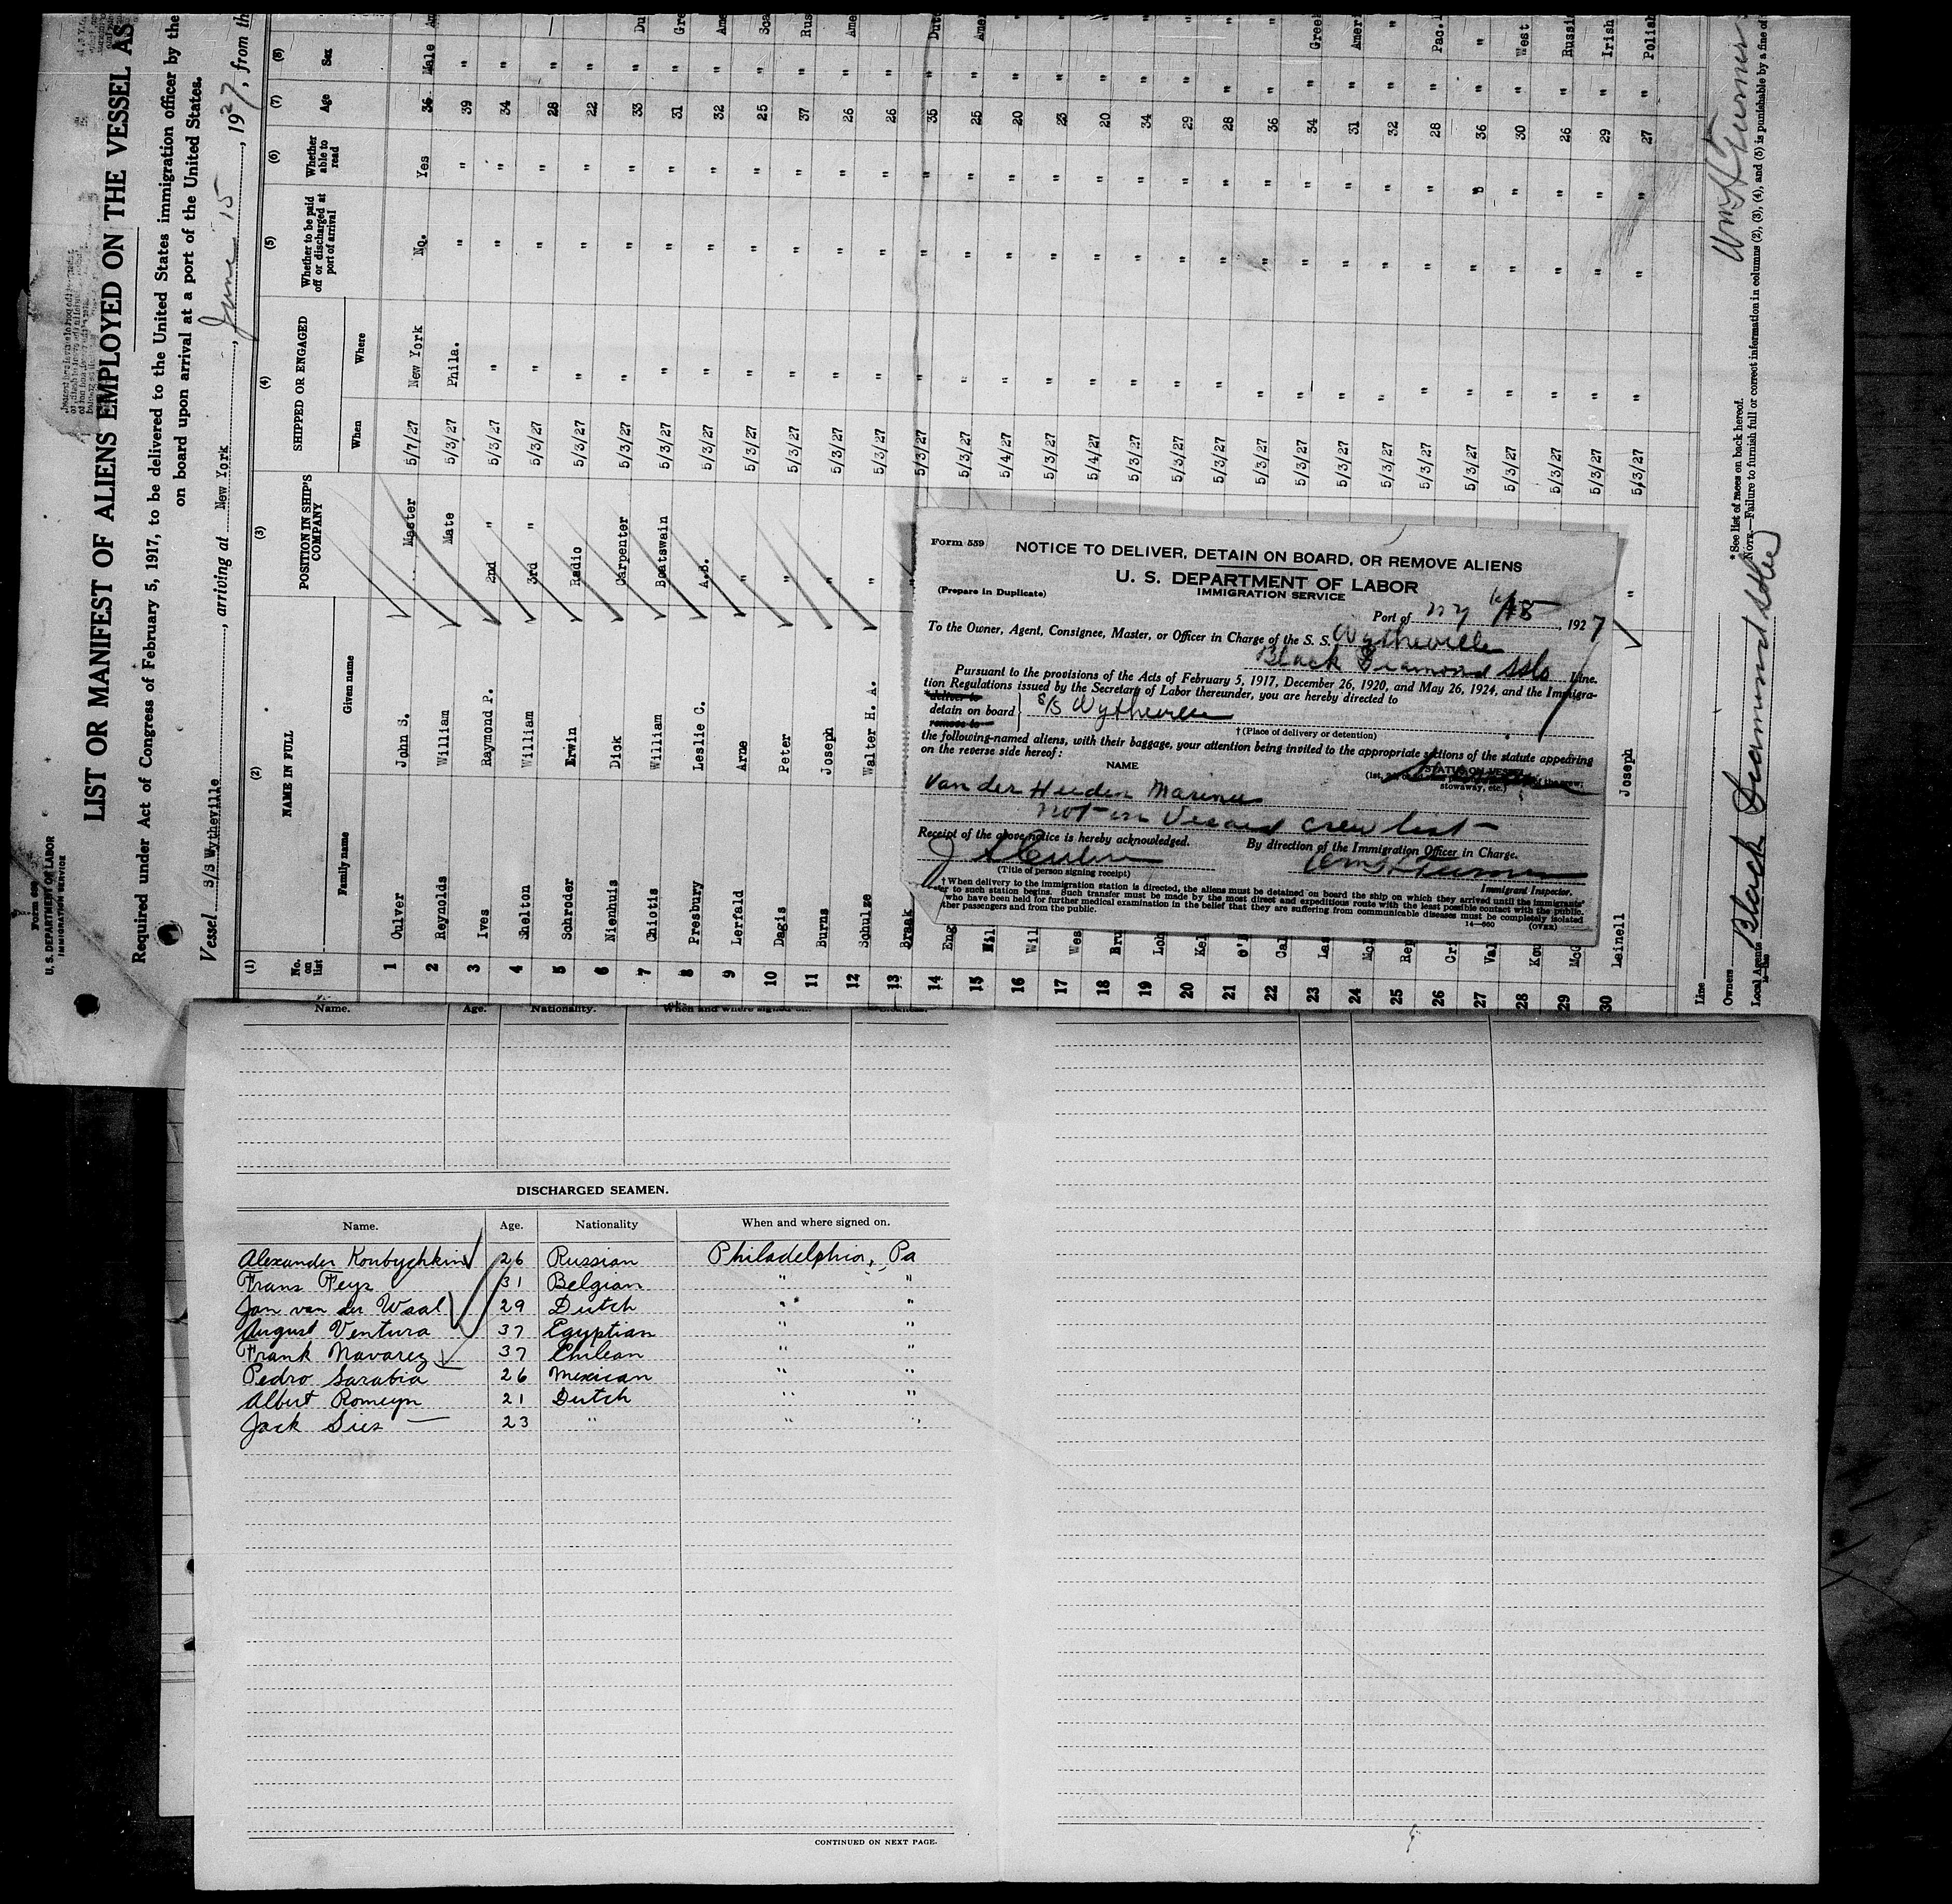 Form 689
U. S. DEPARTMENT OF LABOR
IMMIGRATION SERVICE
LIST OR MANIFEST OF ALIENS EMPLOYED ON THE VESSEL AS
Required under Act of Congress of February 5, 1917, to be delivered to the United States immigration officer by the
on board upon arrival at a port of the United States.
Vessel S/S Wytheville, arriving at New York, June 15, 1927, from th
(1) (2) (3) (4) (5) (6) (7) (8)
No. on list NAME IN FULL POSITION IN SHIP'S COMPANY SHIPPED OR ENGAGED Whether to be paid off or discharged at port of arrival Whether able to read Age Sex
Family name Given name When Where
1 Culver John S. Master 5/7/27 New York No. Yes 36 Male Am
2 Reynolds William Mate 5/3/27 Phila. " " 39 "
3 Ives Raymond P. 2nd " 5/3/27 " " " 34 "
4 Shelton William 3rd " 5/3/27 " " " 28 "
5 Schroder Erwin Radio 5/3/27 " " " 22 "
6 Nienhuis Dick Carpenter 5/3/27 " " " 33 " Du
7 Chiotis William Boatswain 5/3/27 " " " 31 " Gre
8 Presbury Leslie C. A.B. 5/3/27 " " " 32 " Ame
9 Lerfald Arne " 5/3/27 " " " 25 " Sca
10 Dagis Peter " 5/3/27 " " " 37 " Rus
11 Burns Joseph " 5/3/27 " " " 26 " Ame
12 Schulze Walter H. A. " 5/3/27 " " " 26 "
13 Braak " 5/3/27 " " " 35 " Dut
14 Eng 5/3/27 " " " 25 " Amer
15 Mil 5/4/27 " " " 20 " "
16 Wil 5/3/27 " " " 23 " "
17 Wes 5/4/27 " " " 20 " "
18 Bru 5/3/27 " " " 34 " "
19 Loh 5/3/27 " " " 29 " "
20 Kel 5/3/27 " " " 28 " "
21 O'B 5/3/27 " " " 36 " "
22 Cal 5/3/27 " " " 34 " Gree
23 Las 5/3/27 " " " 31 " Ameri
24 McL 5/3/27 " " " 32 " "
25 Rey 5/3/27 " " " 28 " Pac.I
26 Gri 5/3/27 " " " 36 " "
27 Val 5/3/27 " " " 30 " West
28 Kou 5/3/27 " " " 26 " Russi
29 McG 5/3/27 " " " 29 " Irish
30 Leinell Joseph " 5/3/27 " " " 27 " Polish
Line
Owners
Local Agents Black Diamond
* See list of races on back hereof.
NOTE.—Failure to furnish full or correct information in columns (2), (3), (4), and (5) is punishable by a fine of
Wm H Turner
Form 559
NOTICE TO DELIVER, DETAIN ON BOARD, OR REMOVE ALIENS
U. S. DEPARTMENT OF LABOR
IMMIGRATION SERVICE
(Prepare in Duplicate)
Port of NY 6/15, 1927
To the Owner, Agent, Consignee, Master, or Officer in Charge of the S. S. Wytheville
Black Diamond SSCo Line.
Pursuant to the provisions of the Acts of February 5, 1917, December 26, 1920, and May 26, 1924, and the Immigra-
tion Regulations issued by the Secretary of Labor thereunder, you are hereby directed to
*deliver to
detain on board S/S Wytheville
remove to
† (Place of delivery or detention)
the following-named aliens, with their baggage, your attention being invited to the appropriate sections of the statute appearing
on the reverse side hereof:
NAME STATUS ON VESSEL
stowaway, etc.)
Van der Heiden Marinus
not on Visaed crew list —
Receipt of the above notice is hereby acknowledged. By direction of the Immigration Officer in Charge.
Wm H Turner
(Title of person signing receipt) Immigrant Inspector.
† When delivery to the immigration station is directed, the aliens must be detained on board the ship on which they arrived until the immigrants'
er to such station begins. Such transfer must be made by the most direct and expeditious route with the least possible contact with the public.
who have been held for further medical examination in the belief that they are suffering from communicable diseases must be completely isolated
ther passengers and from the public.
14—660 (OVER)
Name. Age. Nationality. When and where signed on.
DISCHARGED SEAMEN.
Name. Age. Nationality When and where signed on.
Alexander Konbychkin 26 Russian Philadelphia, Pa
Frans Feys 31 Belgian " "
Jan van der Waal 29 Dutch " "
August Ventura 37 Egyptian " "
Frank Navarez 37 Chilean " "
Pedro Sarabia 26 Mexican " "
Albert Romeyn 21 Dutch " "
Jack Sies — 23 " " "
CONTINUED ON NEXT PAGE.